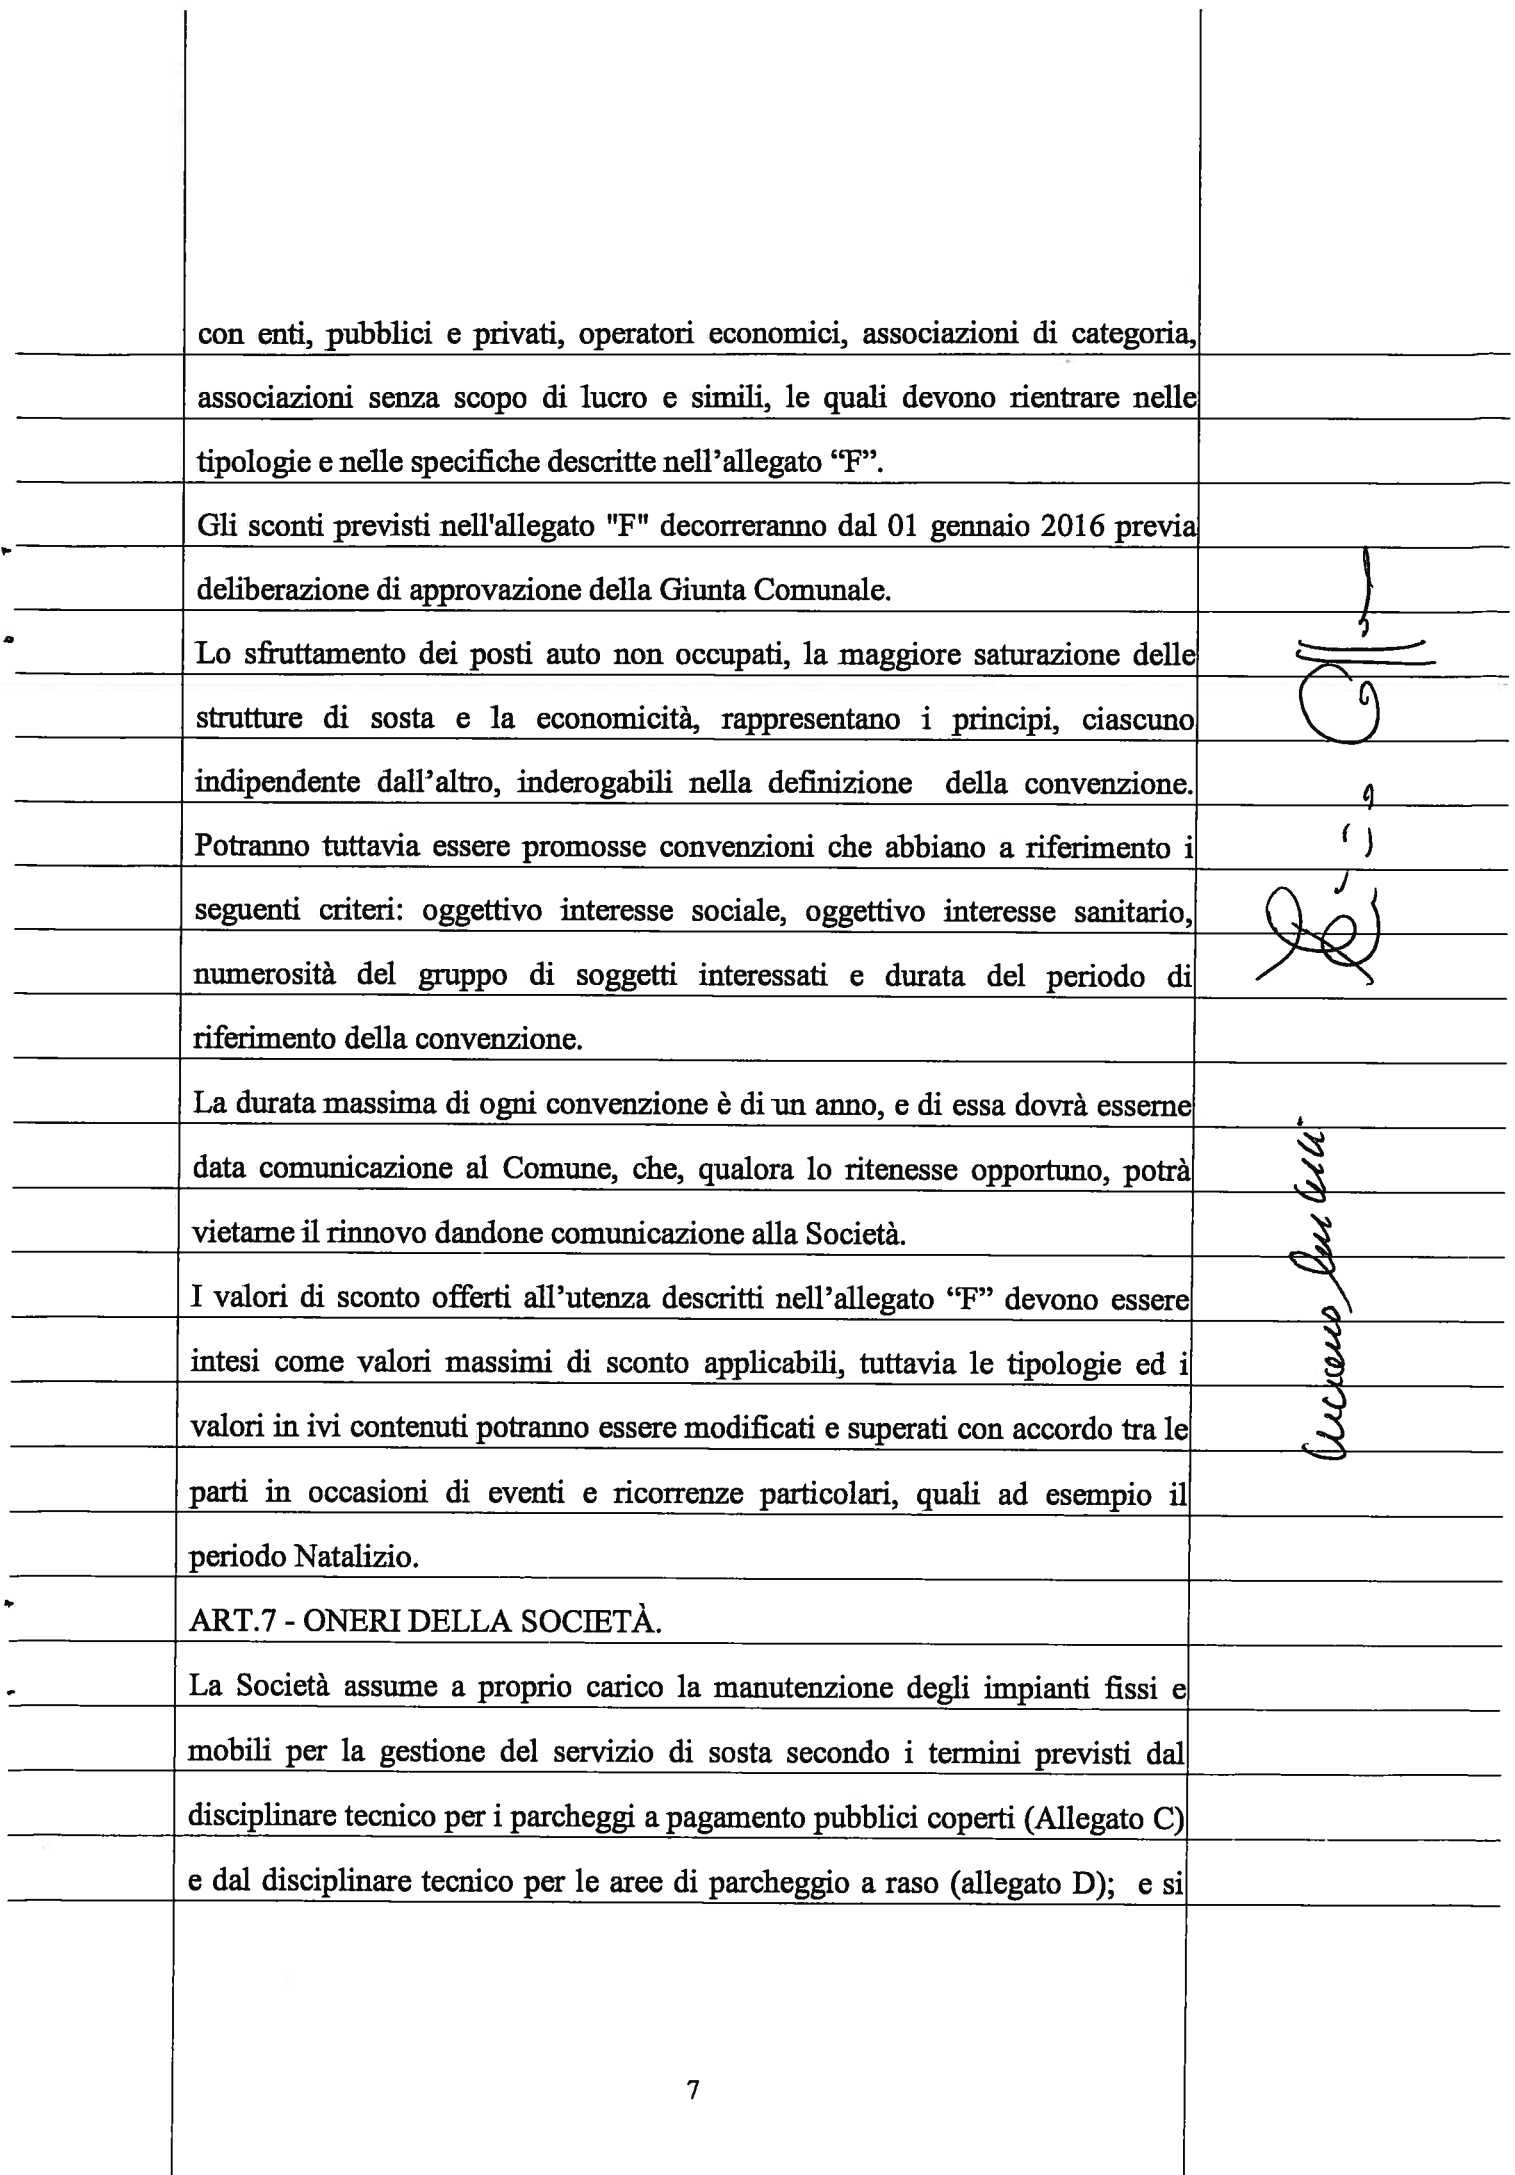 con enti, pubblici e privati, operatori economici, associazioni di categoria,
associazioni senza scopo di lucro e simili, le quali devono rientrare nelle
tipologie e nelle specifiche descritte nell’allegato “F”.
Gli sconti previsti nell'allegato "F" decorreranno dal 01 gennaio 2016 previa
deliberazione di approvazione della Giunta Comunale.
Lo sfruttamento dei posti auto non occupati, la maggiore saturazione delle
strutture di sosta e la economicità, rappresentano i principi, ciascuno
indipendente dall’altro, inderogabili nella definizione della convenzione.
Potranno tuttavia essere promosse convenzioni che abbiano a riferimento i
seguenti criteri: oggettivo interesse sociale, oggettivo interesse sanitario,
numerosità del gruppo di soggetti interessati e durata del periodo di
riferimento della convenzione.
La durata massima di ogni convenzione è di un anno, e di essa dovrà esserne
data comunicazione al Comune, che, qualora lo ritenesse opportuno, potrà
vietarne il rinnovo dandone comunicazione alla Società.
I valori di sconto offerti all’utenza descritti nell’allegato “F” devono essere
intesi come valori massimi di sconto applicabili, tuttavia le tipologie ed i
valori in ivi contenuti potranno essere modificati e superati con accordo tra le
parti in occasioni di eventi e ricorrenze particolari, quali ad esempio il
periodo Natalizio.
ART.7 - ONERI DELLA SOCIETÀ.
La Società assume a proprio carico la manutenzione degli impianti fissi e
mobili per la gestione del servizio di sosta secondo i termini previsti dal
disciplinare tecnico per i parcheggi a pagamento pubblici coperti (Allegato C)
e dal disciplinare tecnico per le aree di parcheggio a raso (allegato D); e si
7